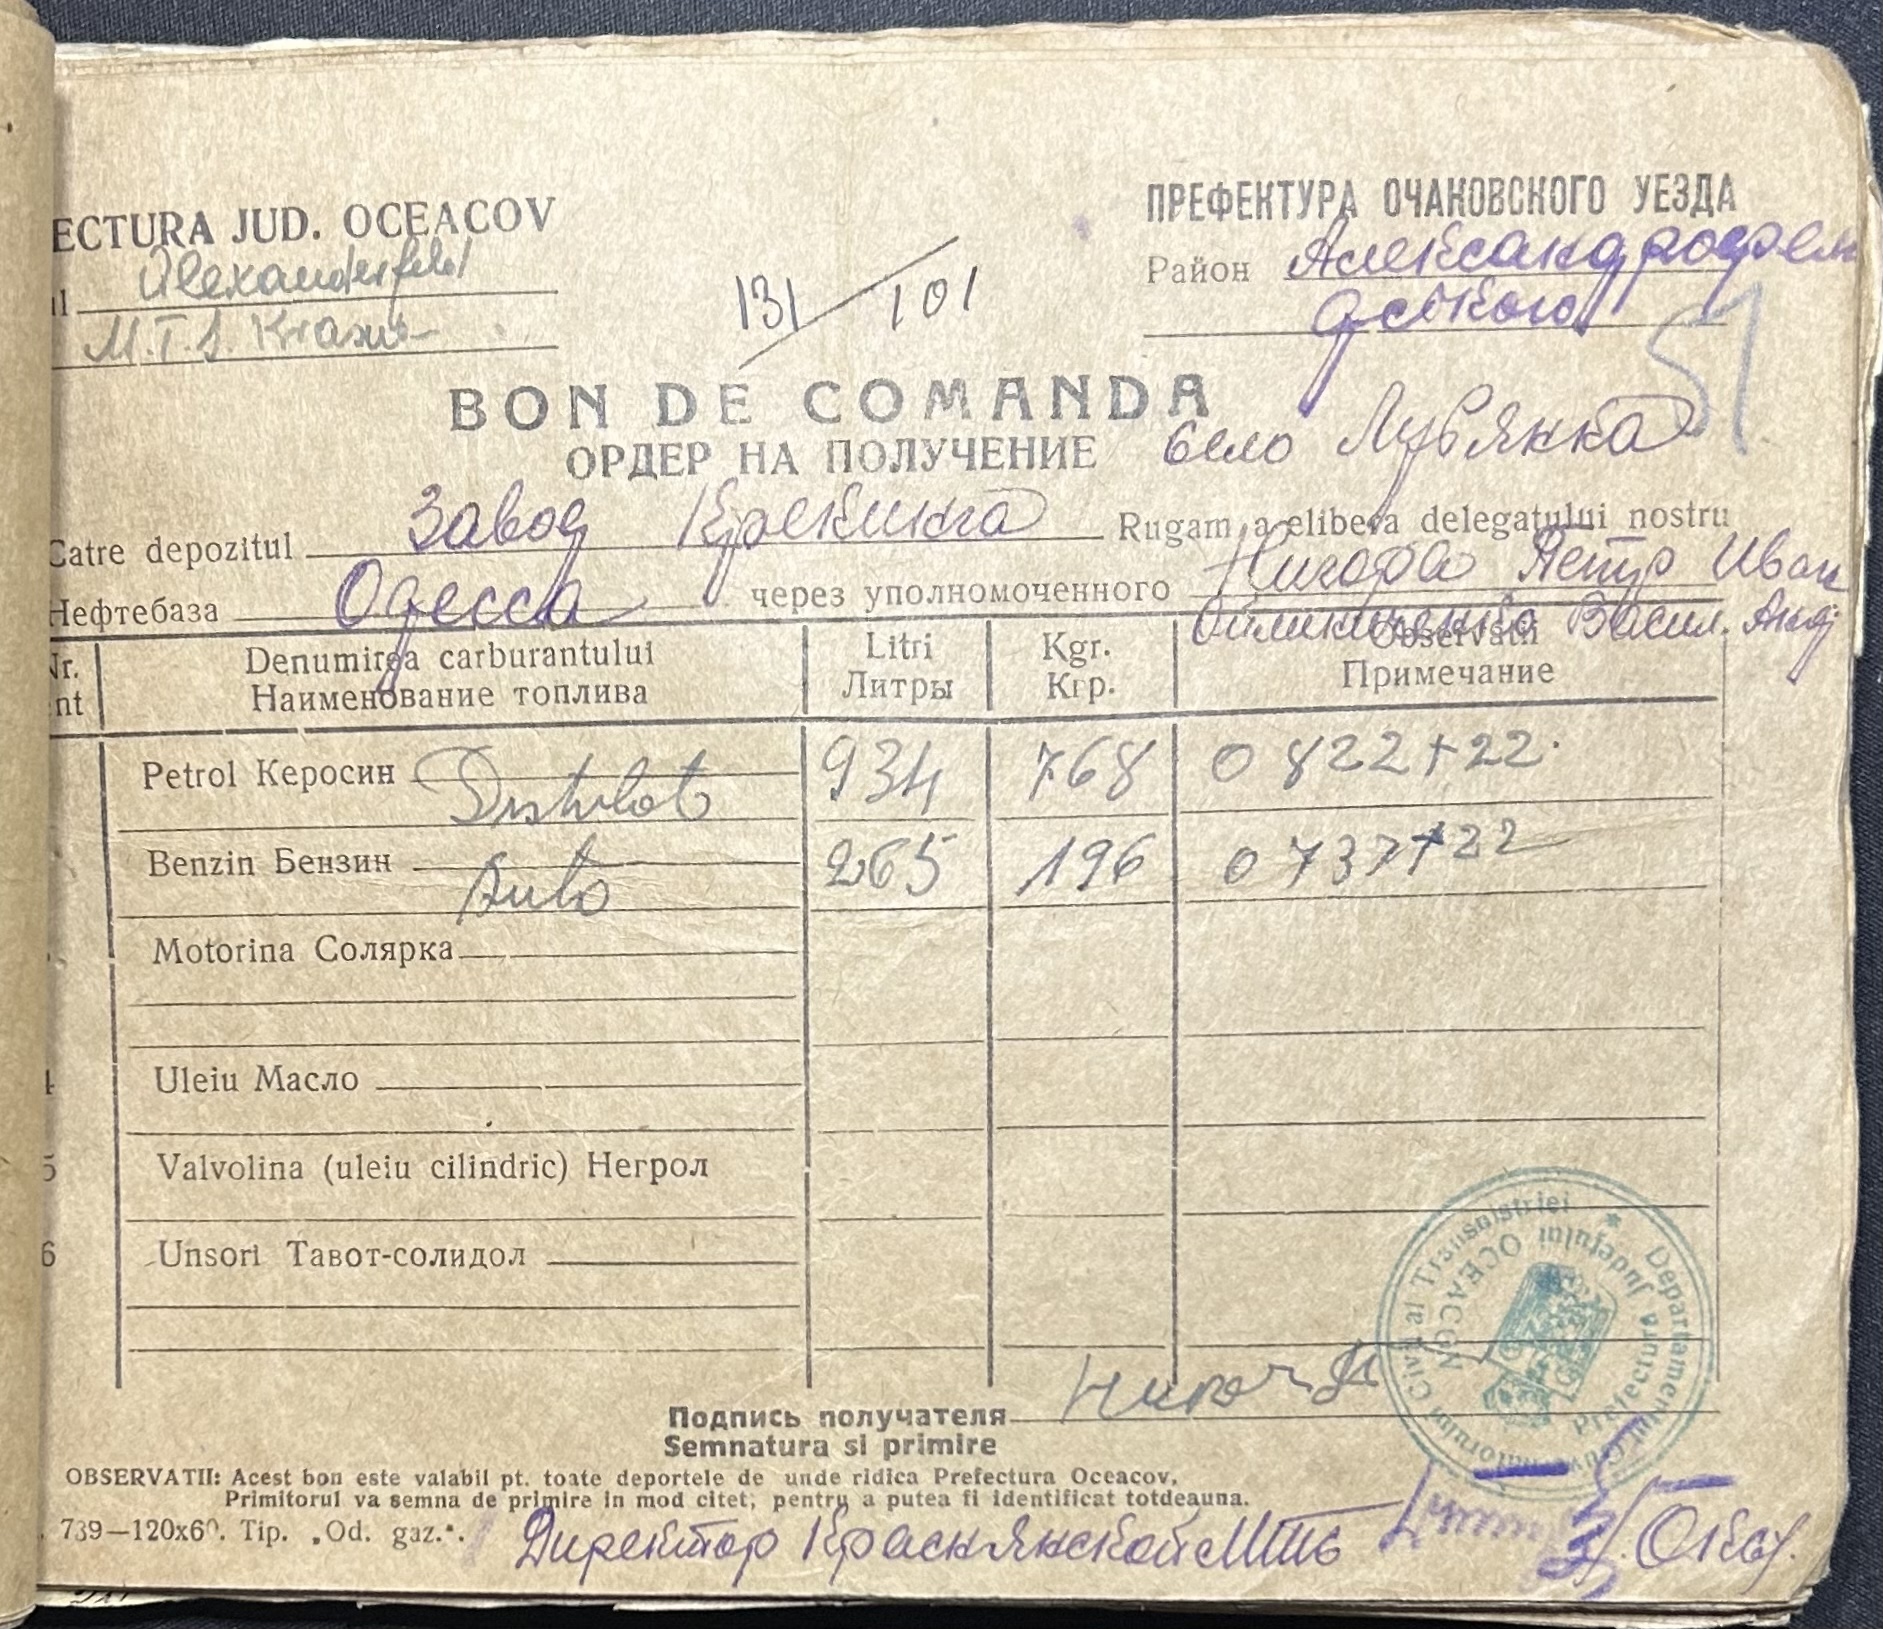 ECTURA JUD. OCEACOV
ul Alexanderfeld
M.T.S. Krasne-
131/101
ПРЕФЕКТУРА ОЧАКОВСКОГО УЕЗДА
Район Александрофель
дского
51
BON DE COMANDA
ОРДЕР НА ПОЛУЧЕНИЕ село Лубянка
Catre depozitul Завод Крекинга Rugam a elibera delegatului nostru
Нефтебаза Одесса через уполномоченного Петр Иван
Васил. Анд
Nr. Denumirea carburantului Litri Kgr. Observatii
nt Наименование топлива Литры Кгр. Примечание
Petrol Керосин Distilat 934 768 0822+22
Benzin Бензин Auto 265 196 0737+22
Motorina Солярка
4 Uleiu Масло
5 Valvolina (uleiu cilindric) Негрол
6 Unsori Тавот-солидол
Подпись получателя
Semnatura si primire
OBSERVATII: Acest bon este valabil pt. toate deportele de unde ridica Prefectura Oceacov.
Primitorul va semna de primire in mod citet, pentru a putea fi identificat totdeauna.
739—120x60. Tip. „Od. gaz.“.
Директор Краснянской МТС
Departamentul Guvernatorului Civil al Transnistriei *
Prefectura Județului OCEACOV